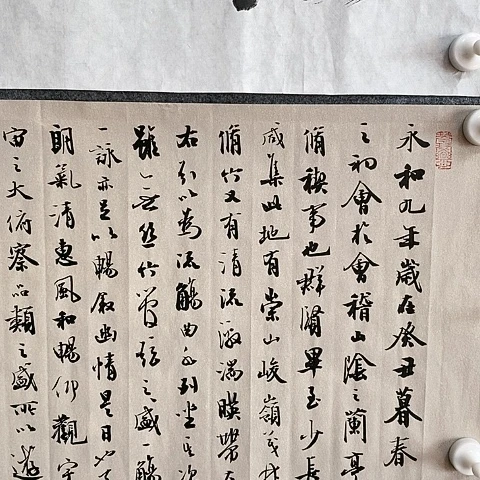 永和九年歲在癸丑暮春
之初會於會稽山陰之蘭亭
脩禊事也群賢畢至少長
咸集此地有崇山峻嶺茂林
脩竹又有清流激湍暎帶左
右引以為流觴曲水列坐其次
雖無絲竹管弦之盛一觴
一詠亦足以暢敘幽情是日也天
朗氣清惠風和暢仰觀宇
宙之大俯察品類之盛所以遊